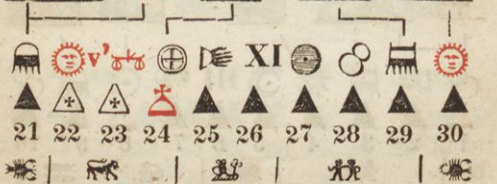 v' XI
21 22 23 24 25 26 27 28 29 30